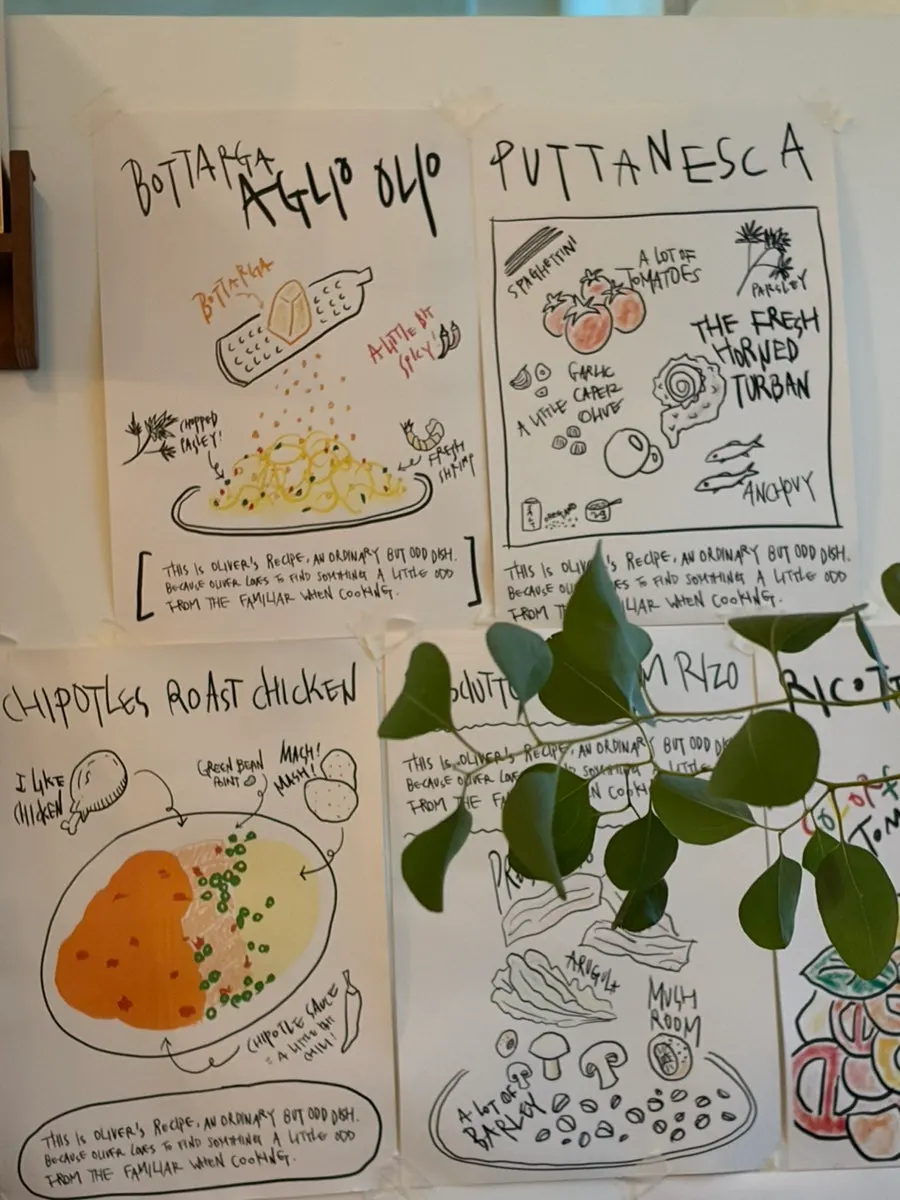 BOTTARGA
AGLIO OLIO
BOTTARGA
A LITTLE BIT
SPICY!
CHOPPED
PASLEY!
FRESH
SHRIMP
THIS IS OLIVER'S RECIPE, AN ORDINARY BUT ODD DISH.
BECAUSE OLIVER LOVES TO FIND SOMTHING A LITTLE ODD
FROM THE FAMILIAR WHEN COOKING.
PUTTANESCA
SPAGHETTINI
A LOT OF
TOMATOES
PARSLEY
THE FRESH
HORNED
TURBAN
GARLIC
A LITTLE CAPER
OLIVE
ANCHOVY
THIS IS OLIVER'S RECIPE, AN ORDINARY BUT ODD DISH.
BECAUSE LOVES TO FIND SOMTHING A LITTLE ODD
FROM THE FAMILIAR WHEN COOKING.
CHIPOTLES ROAST CHICKEN
I LIKE
CHICKEN
GREEN BEAN
POINT
MACH!
MASH!
CHIPOTLE SAUCE
= A LITTLE BIT
CHILI!
THIS IS OLIVER'S RECIPE, AN ORDINARY BUT ODD DISH.
BECAUSE OLIVER LOVES TO FIND SOMETHING A LITTLE ODD
FROM THE FAMILIAR WHEN COOKING.
RIZO
THIS IS OLIVER'S RECIPE, AN ORDINARY BUT ODD
BECAUSE OLIVER SOMTHING A LITTLE
FROM THE
ARUGULA
MUSH
ROOM
A LOT OF
BARLEY